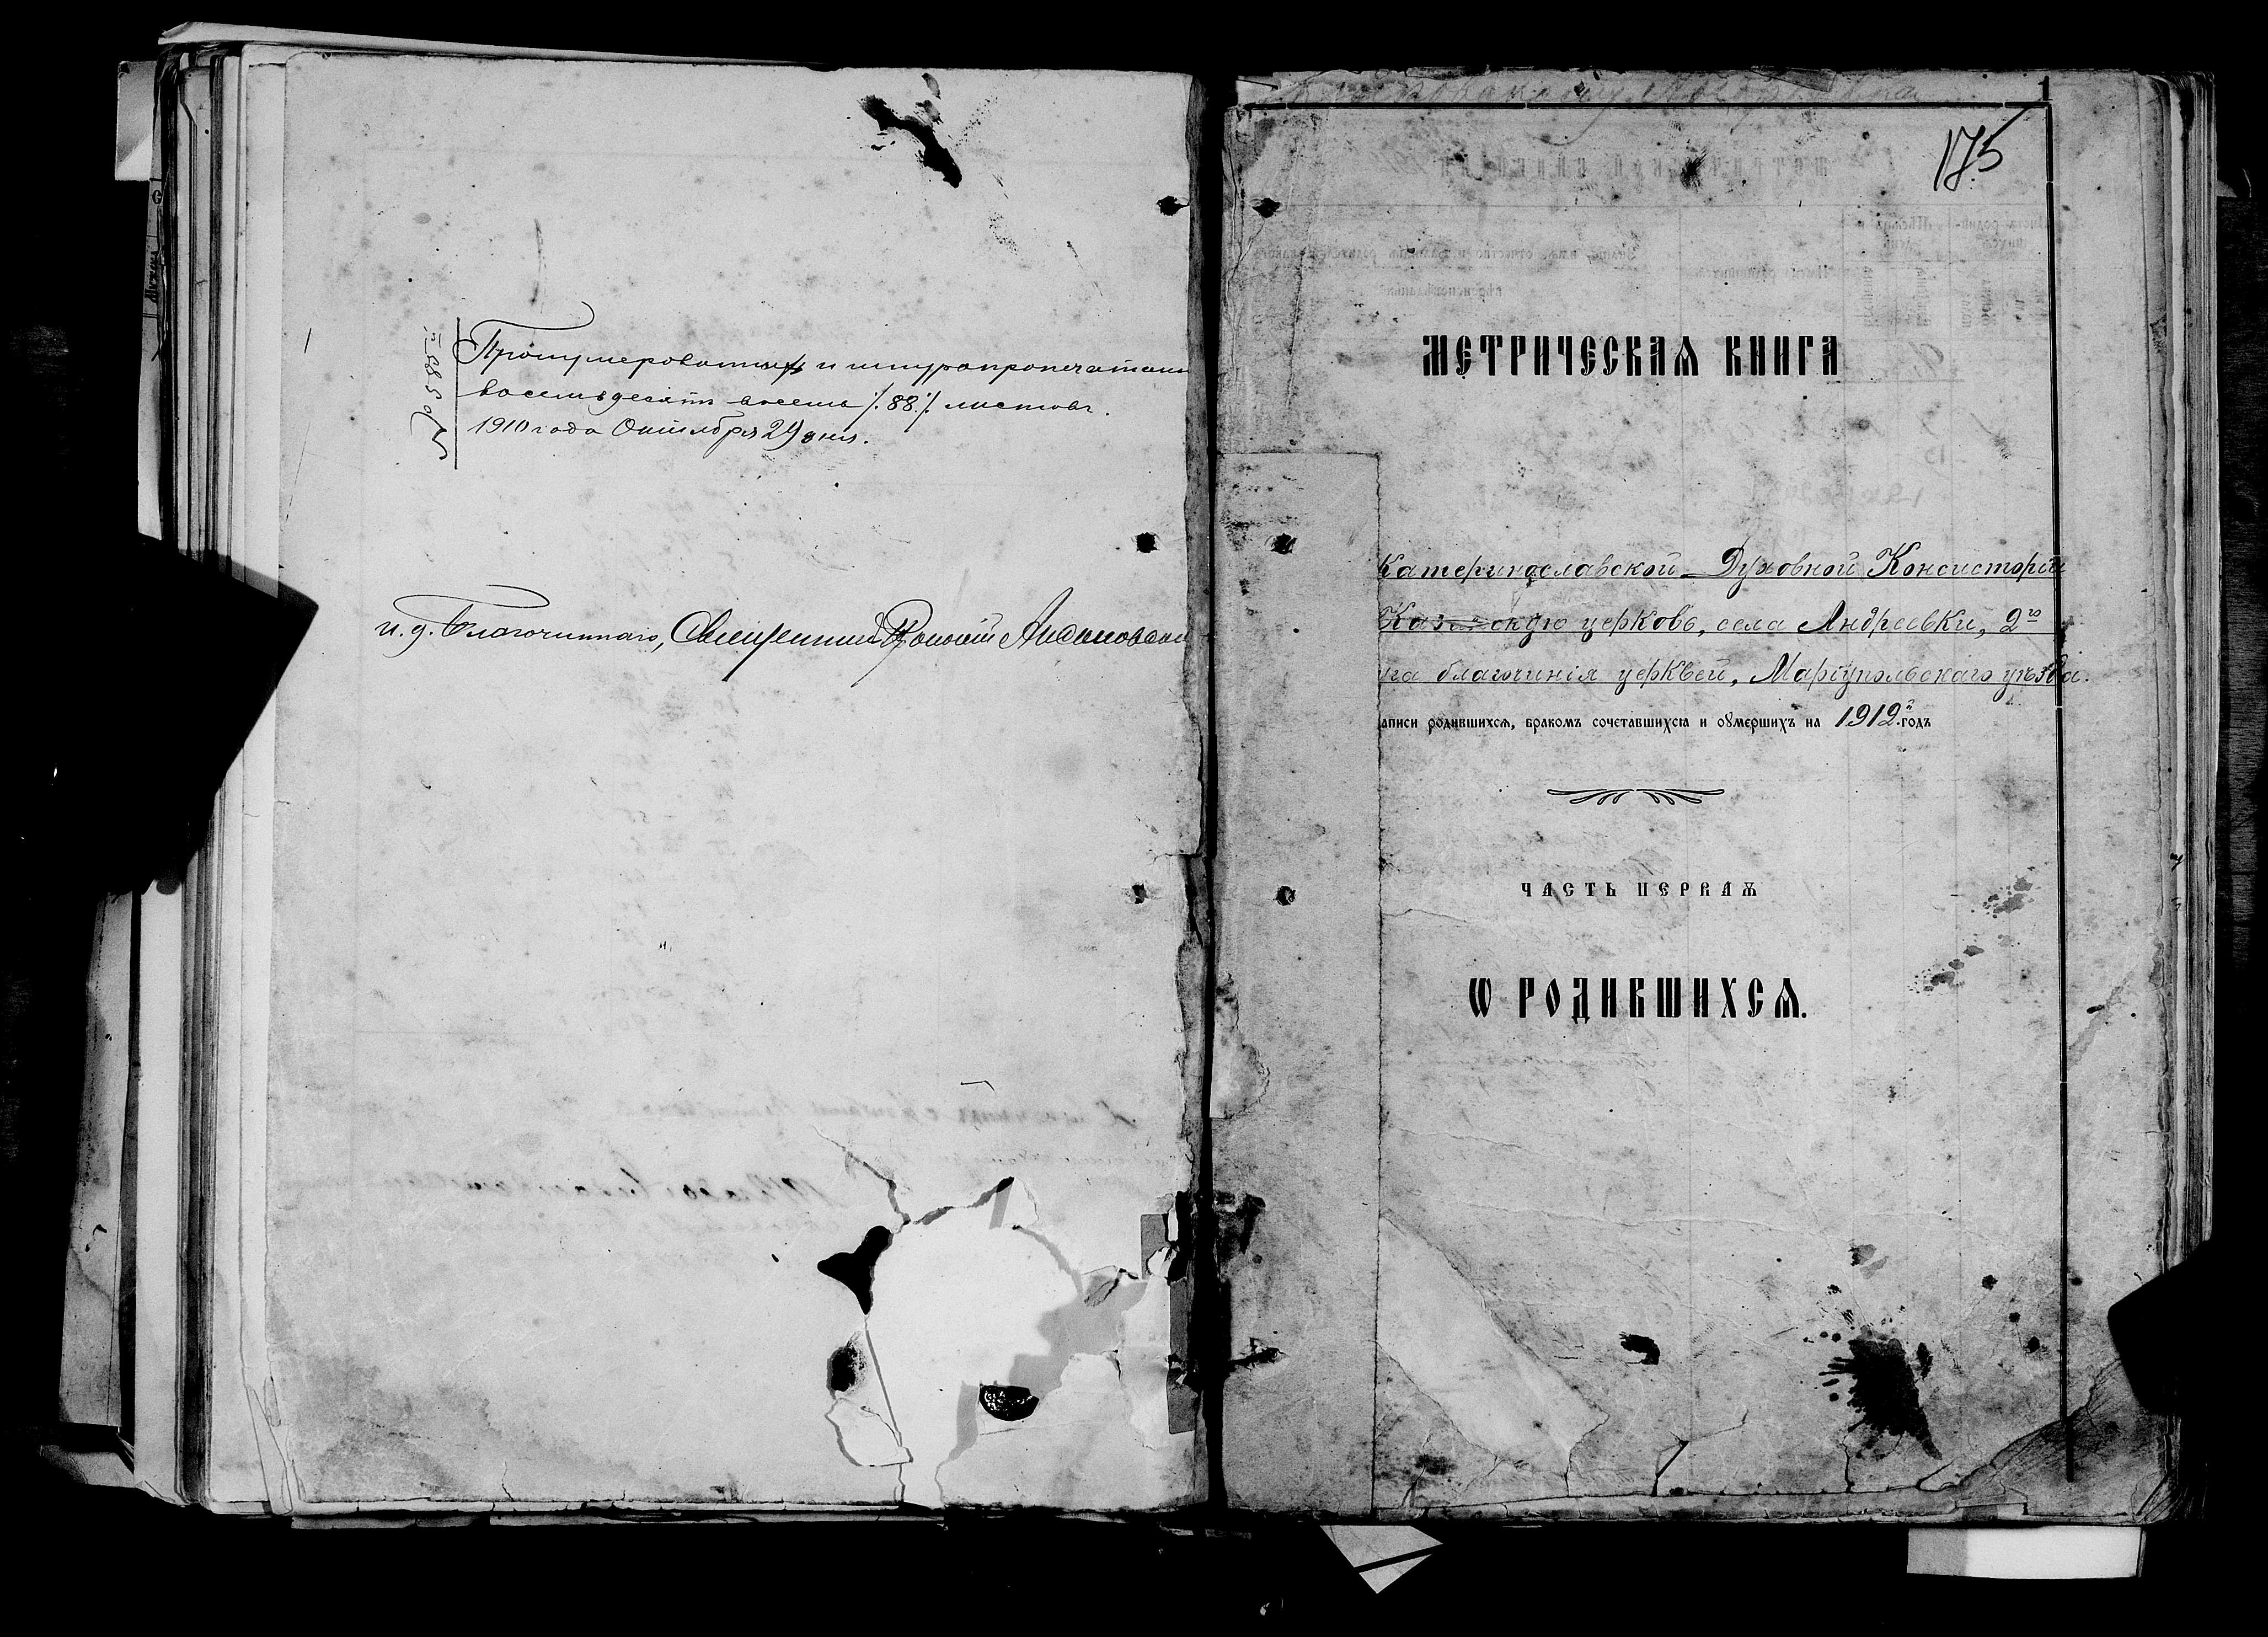 Пронумерованных и шнуропропечатан
восемьдесятъ восемь /.88./ листовъ.
1910 года Октября 29 дня.
№ 5388
и. д. Благочиннаго, Священникъ
1
175
МЕТРИЧЕСКАЯ КНИГА
Катеринославской Духовной Консисторіи
Казанскую церковь, села Андреевки, 2го
уга благочинія церквей, Маріупольскаго уѣзда.
аписи родившихся, бракомъ сочетавшихся и оумершихъ на 1912й годъ
ЧАСТЬ ПЕРВАЯ
Ѡ РОДИВШИХСЯ.